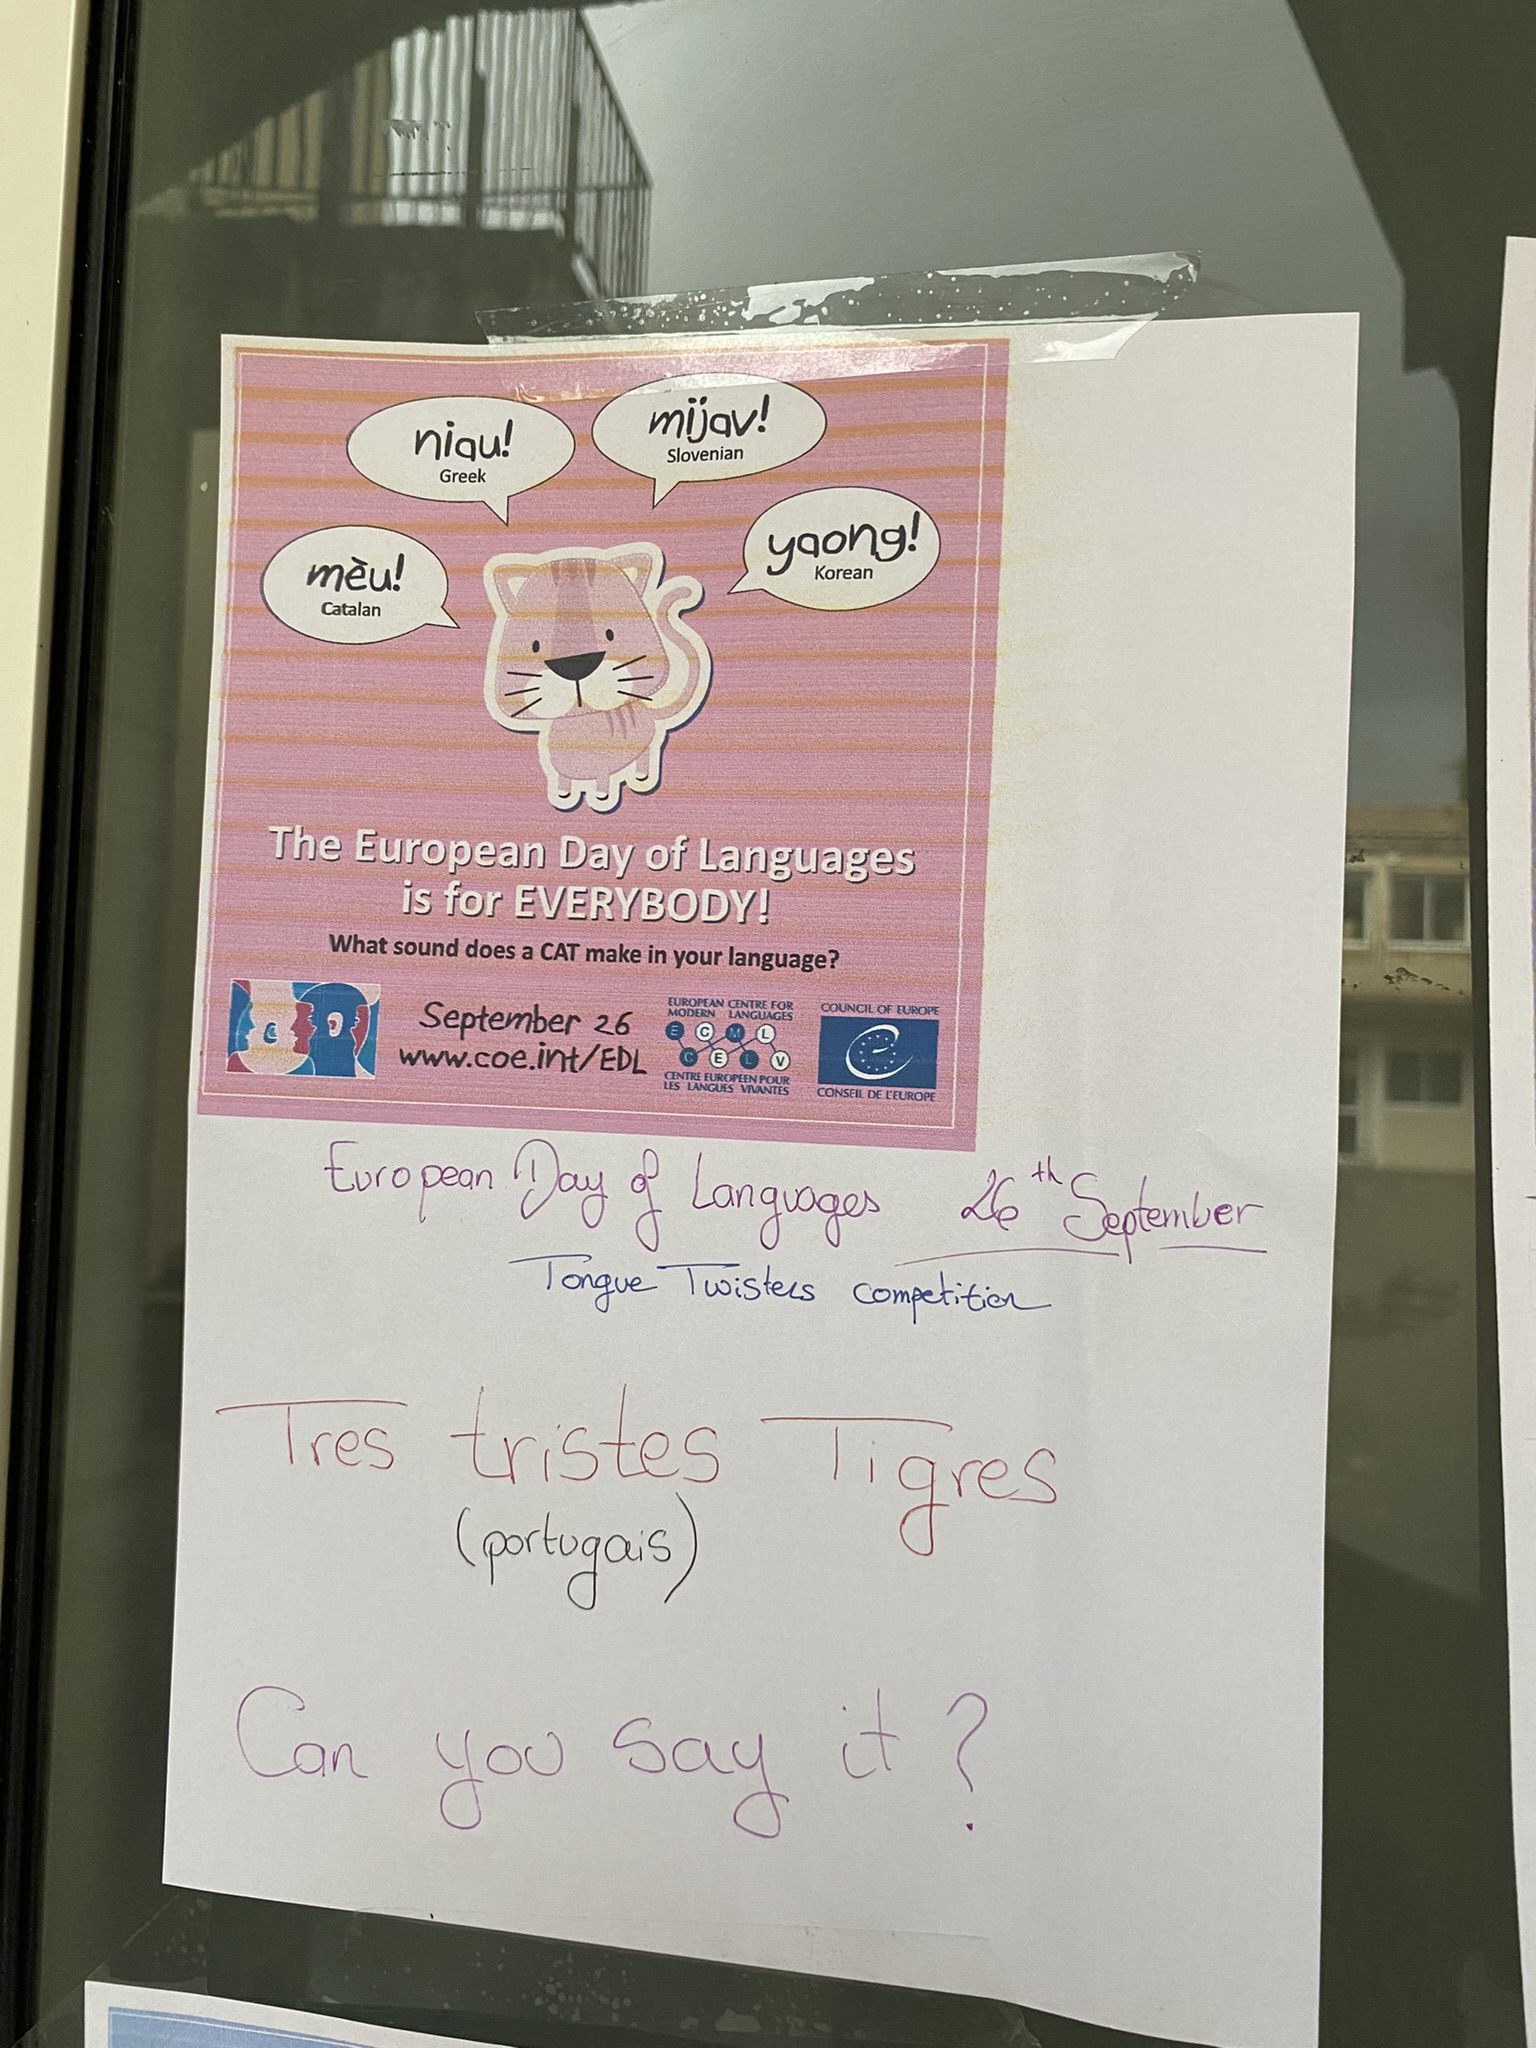 niau!
Greek
mijav!
Slovenian
mèu!
Catalan
yaong!
Korean
The European Day of Languages
is for EVERYBODY!
What sound does a CAT make in your language?
September 26
www.coe.int/EDL
EUROPEAN CENTRE FOR
MODERN LANGUAGES
E C M L
C E L V
CENTRE EUROPEEN POUR
LES LANGUES VIVANTES
COUNCIL OF EUROPE
CONSEIL DE L'EUROPE
European Day of Languages 26th September
Tongue Twisters competition
Tres tristes Tigres
(portugais)
Can you say it?